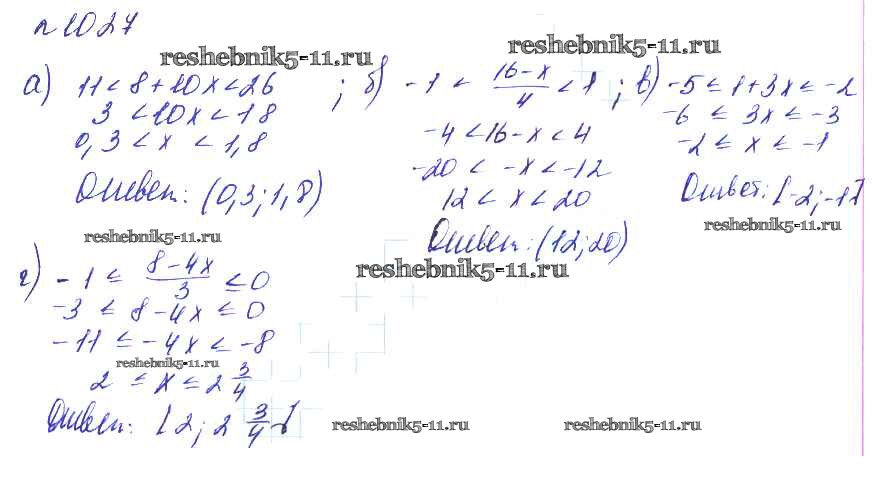 n 1027
reshebnik5-11.ru
reshebnik5-11.ru
а) 11 < 8 + 10x < 26 ;
3 < 10x < 18
0,3 < x < 1,8
Ответ: (0,3; 1,8)
reshebnik5-11.ru
б) -1 < (16-x)/4 < 1 ;
-4 < 16-x < 4
-20 < -x < -12
12 < x < 20
Ответ: (12; 20)
reshebnik5-11.ru
в) -5 ≤ 1+3x ≤ -2
-6 ≤ 3x ≤ -3
-2 ≤ x ≤ -1
Ответ: [-2; -1]
reshebnik5-11.ru
г) -1 ≤ (8-4x)/3 ≤ 0
-3 ≤ 8-4x ≤ 0
-11 ≤ -4x ≤ -8
reshebnik5-11.ru
2 ≤ x ≤ 2 3/4
Ответ: [2; 2 3/4]
reshebnik5-11.ru
reshebnik5-11.ru